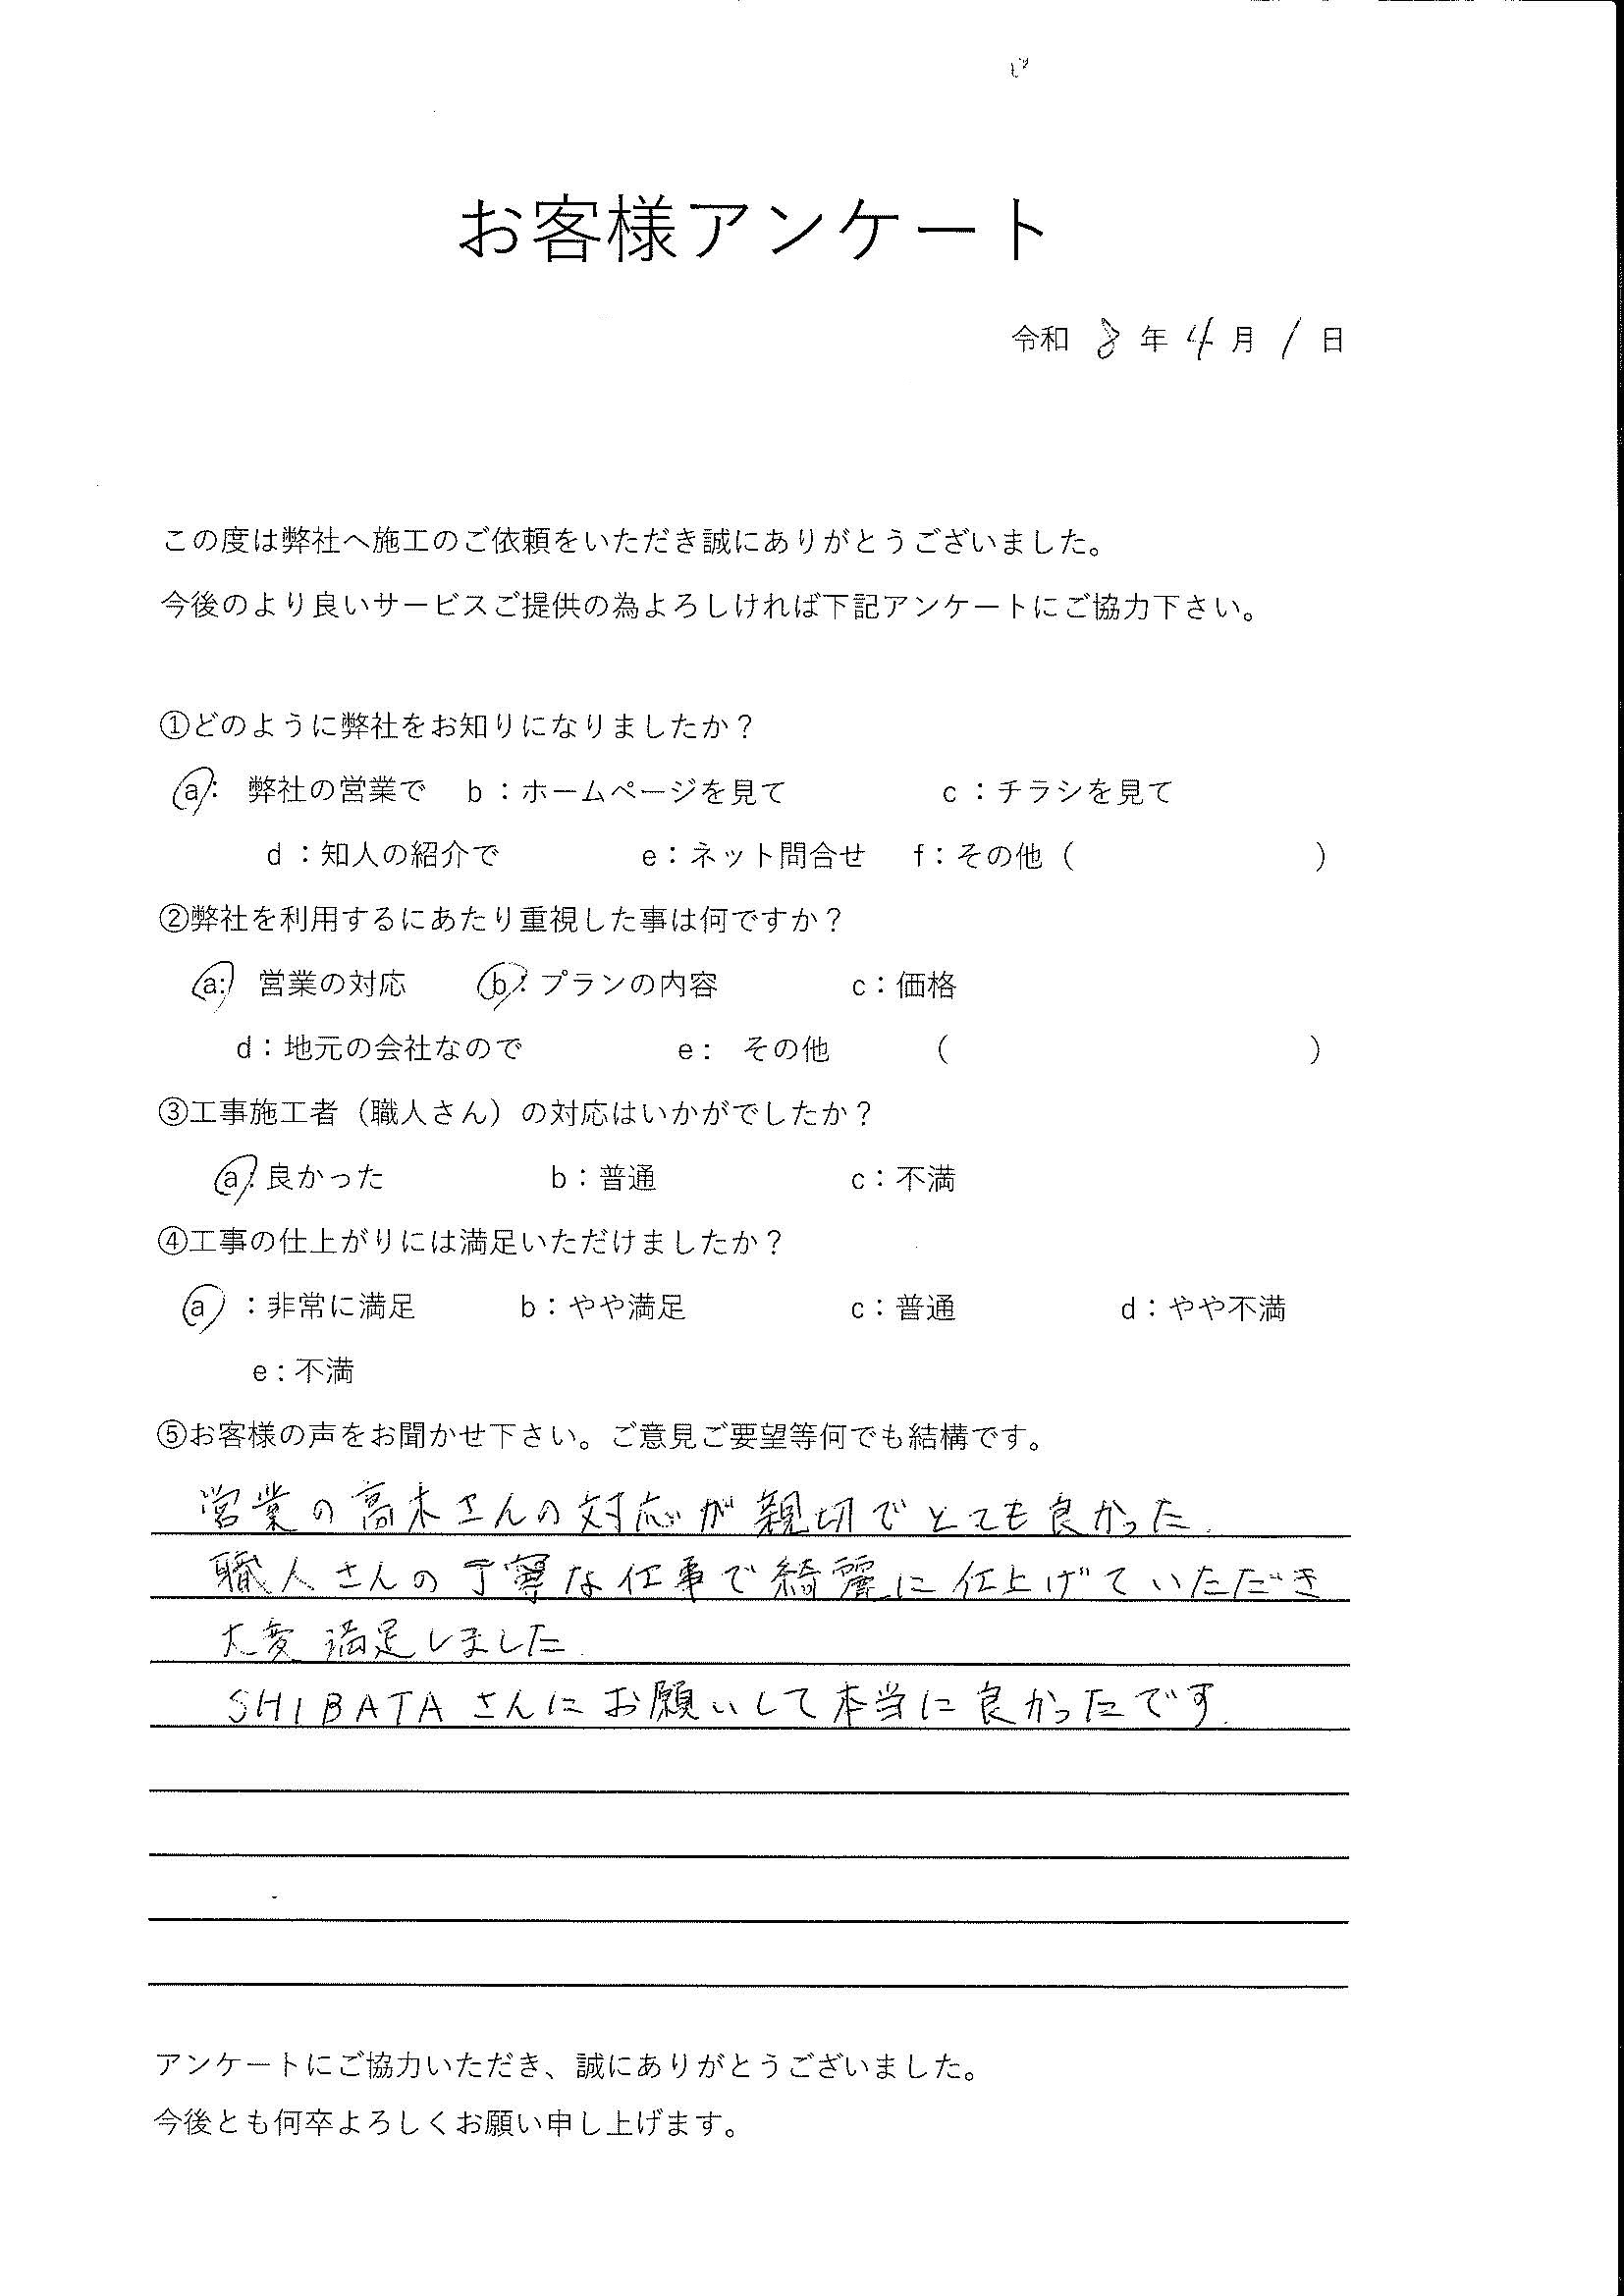 お客様アンケート
令和 8 年 4 月 1 日
この度は弊社へ施工のご依頼をいただき誠にありがとうございました。
今後のより良いサービスご提供の為よろしければ下記アンケートにご協力下さい。
①どのように弊社をお知りになりましたか？
a： 弊社の営業で b：ホームページを見て c：チラシを見て
d：知人の紹介で e：ネット問合せ f：その他（ ）
②弊社を利用するにあたり重視した事は何ですか？
a: 営業の対応 b：プランの内容 c：価格
d：地元の会社なので e： その他 （ ）
③工事施工者（職人さん）の対応はいかがでしたか？
a：良かった b：普通 c：不満
④工事の仕上がりには満足いただけましたか？
a ：非常に満足 b：やや満足 c：普通 d：やや不満
e：不満
⑤お客様の声をお聞かせ下さい。ご意見ご要望等何でも結構です。
営業の高木さんの対応が親切でとても良かった.
職人さんの丁寧な仕事で綺麗に仕上げていただき
大変満足しました.
SHIBATAさんにお願いして本当に良かったです.
アンケートにご協力いただき、誠にありがとうございました。
今後とも何卒よろしくお願い申し上げます。